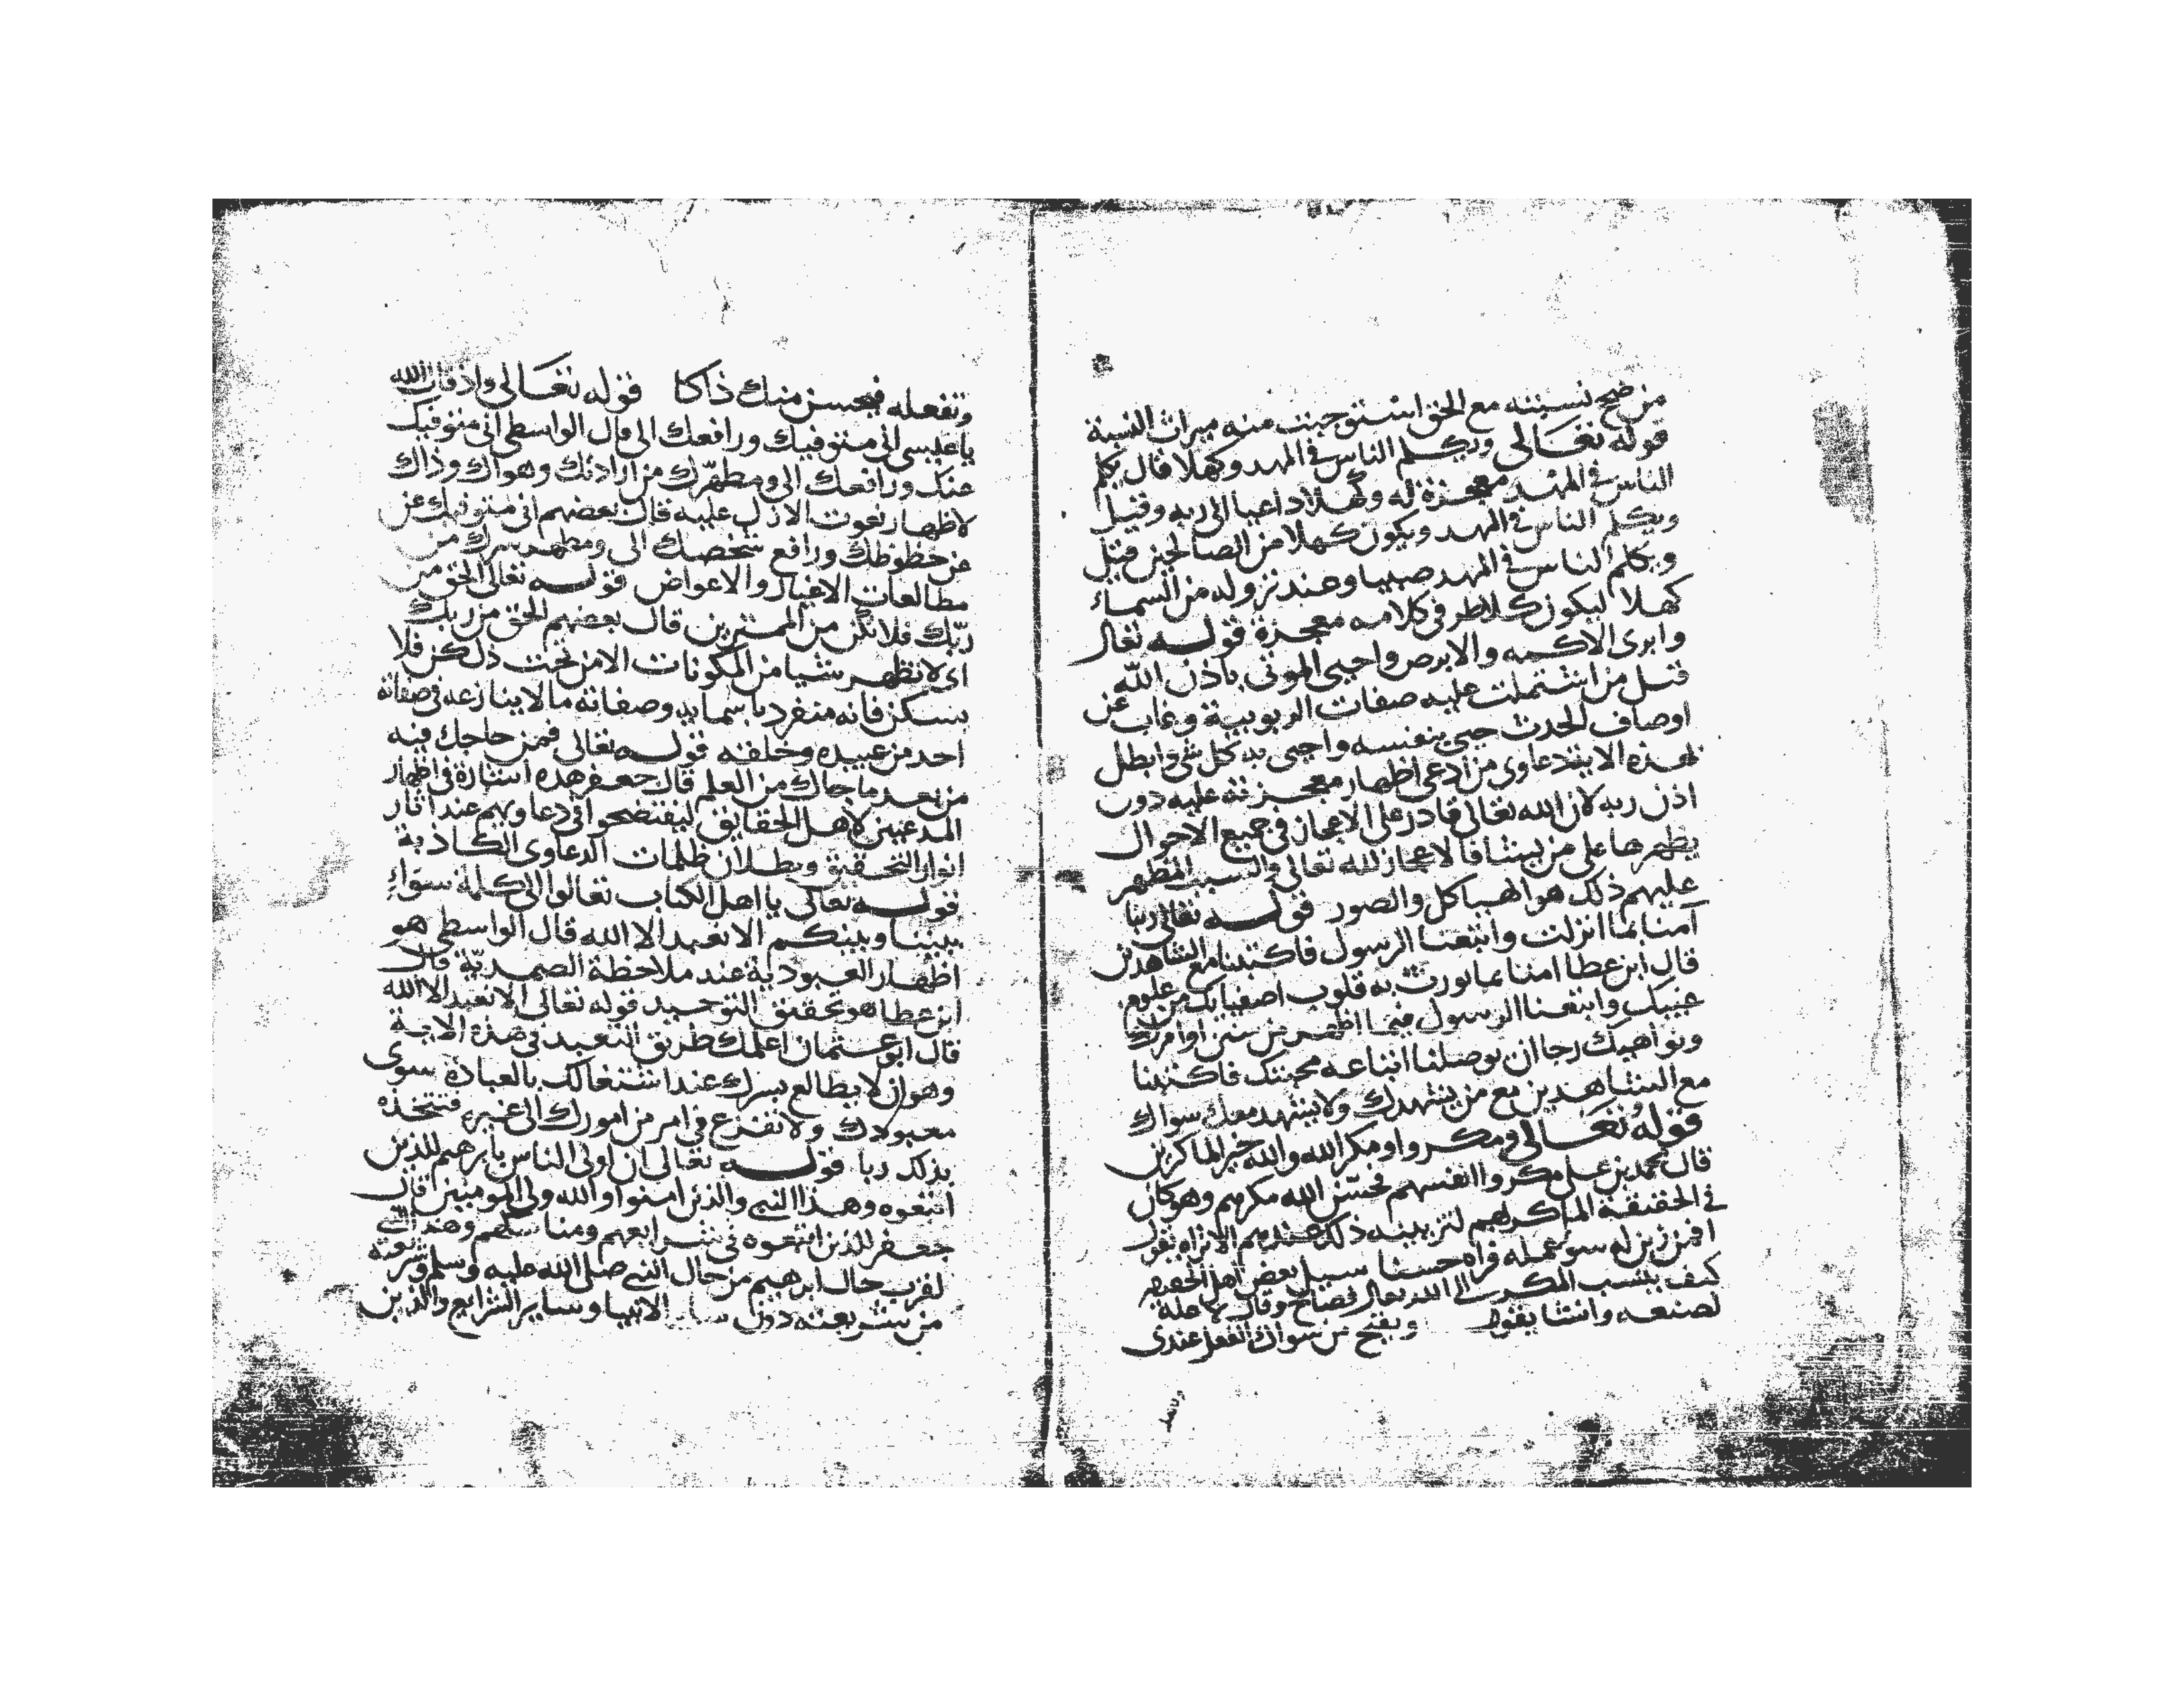 من صح نسبته مع الحق استوجبت منه ميراث النسبة
قوله تعالى ويكلم الناس في المهد وكهلا قال يكلم
الناس في المهد معجزة له وكهلا داعيا الى ربه وقيل
ويكلم الناس في المهد ويكون كهلا من الصالحين قيل
ويكلم الناس في المهد صبيا وعند نزوله من السماء
كهلا ليكون كلا طرفي كلامه معجزة قوله تعالى
وابرى الاكمه والابرص واحيى الموتى باذن الله
قيل من اشتملت عليه صفات الربوبية وغاب عن
اوصاف الحدث حيي بنفسه واحيى به كل شي وابطل
هذه الاية دعاوى من ادعى اظهار معجزته عليه دون
اذن ربه لان الله تعالى قادر على الاعجاز في جميع الاحوال
يظهرها على من يشا فالاعجاز لله تعالى والسبب المظهر
عليهم ذلك هو الهياكل والصور قوله تعالى ربنا
آمنا بما انزلت واتبعنا الرسول فاكتبنا مع الشاهدين
قال ابن عطا امنا بما نورت به قلوب اصفيائك من علوم
غيبك واتبعنا الرسول فيما اظهر من سنن اوامرك
ونواهيك رجا ان يوصلنا اتباعه محبتك فاكتبنا
مع الشاهدين مع من يشهدك ولا يشهد معك سواك
قوله تعالى ومكروا ومكر الله والله خير الماكرين
قال محمد بن علي مكروا انفسهم فحسن الله مكرهم وهو كان
في الحقيقة الماكر لهم لتزيينه ذلك عندهم الا تراه يقول
افمن زين له سو عمله فراه حسنا سيل بعض اهل الحقيقة
كيف ينسب المكر الى الله تعالى فصاح وقال لا علة
لصنعه وانشا يقول ويقبح من سواك الفعل عندي
وتفعله
وتفعله فيحسن منك ذاكا قوله تعالى واذ قال الله
يا عيسى اني متوفيك ورافعك الي قال الواسطي اني متوفيك
عنك ورافعك الي ومطهرك من ارادتك وهواك وذاك
لاظهار نعوت الازل عليه قال بعضهم اني متوفيك عن
عن حظوظك ورافع شخصك الي ومطهر سرك من
مطالعات الاغيار والاعواض قوله تعالى الحق من
ربك فلا تكن من الممترين قال بعضهم الحق من ربك
اي لا تظهر شيا من المكونات الا من تحت ذل كن فلا
يسكن فانه منفرد باسمايه وصفاته ما لا ينازعه في صفاته
احد من عبيده وخلقه قوله تعالى فمن حاجك فيه
من بعد ما جاك من العلم قال جعفر هذه اشارة في اظهار
المدعين لاهل الحقايق ليفتضحوا في دعاويهم عند اثار
انوار التحقيق وبطلان ظلمات الدعاوى الكاذبة
قوله تعالى يا اهل الكتاب تعالوا الى كلمة سواء
بيننا وبينكم الا نعبد الا الله قال الواسطي هو
اظهار العبودية عند ملاحظة الصمدية قال
ابن عطا هو تحقيق التوحيد قوله تعالى الا نعبد الا الله
قال ابو عثمان اعلمك طريق التعبد في هذه الاية
وهو ان لا يطالع بسرك عند اشتغالك بالعبادة سوى
معبودك ولا تفزع في امر من امورك الى غيره فتتخذه
بذلك ربا قوله تعالى ان اولى الناس بابرهيم للذين
اتبعوه وهذا النبي والذين امنوا والله ولي المومنين قال
جعفر للذين اتبعوه في شرايعهم ومناسكهم وهذا النبي
لقرب حال ابرهيم من حال النبي صلى الله عليه وسلم وشريعته
من شريعته دون ساير الانبيا وساير الشرايع والذين